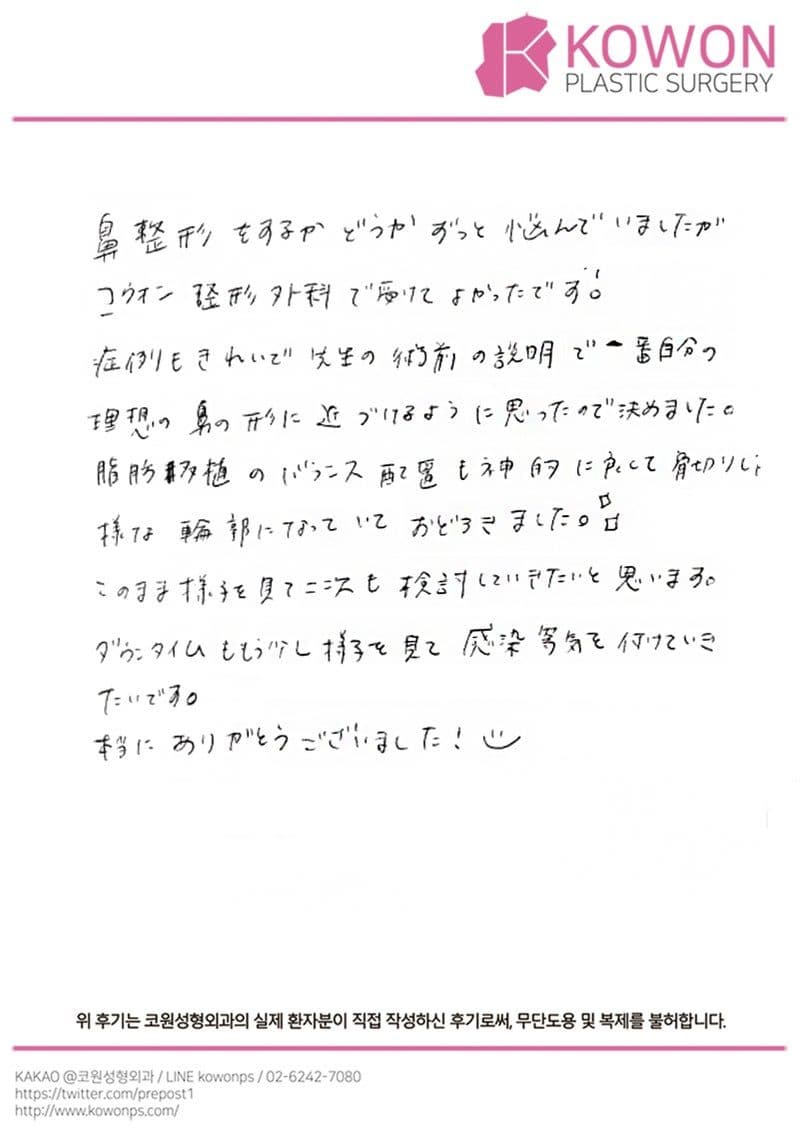 KOWON
PLASTIC SURGERY
鼻整形をするかどうかずっと悩んでいましたが
コウオン整形外科で受けてよかったです!
症例もきれいで先生の術前の説明で一番自分の
理想の鼻の形に近づけるように思ったので決めました。
脂肪移植のバランス配置も神的に感じて骨切りした
様な輪郭になっていておどろきました。
このまま様子を見て二次も検討していきたいと思います。
ダウンタイムももう少し様子を見て感染等気を付けていき
たいです。
本当にありがとうございました!
위 후기는 코원성형외과의 실제 환자분이 직접 작성하신 후기로써, 무단도용 및 복제를 불허합니다.
KAKAO @코원성형외과 / LINE kowonps / 02-6242-7080
https://twitter.com/prepost1
http://www.kowonps.com/